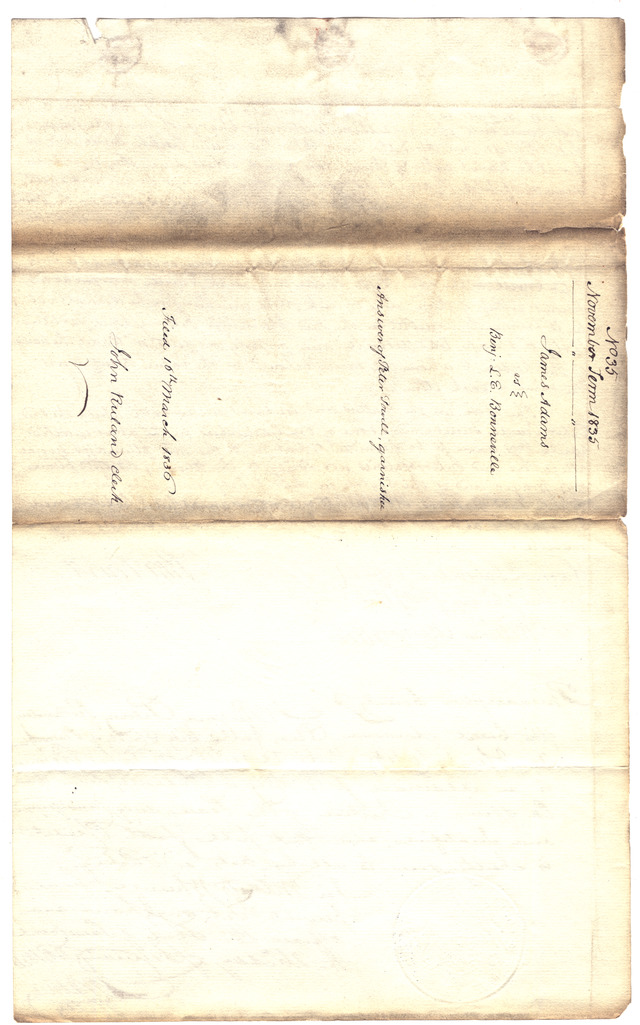 No 35
November Term 1835
" "
James Adams
vs
Benj L. E. Bonneville
Answer of Peter garnishee
Filed 10th March 1836
John Ruland Clerk